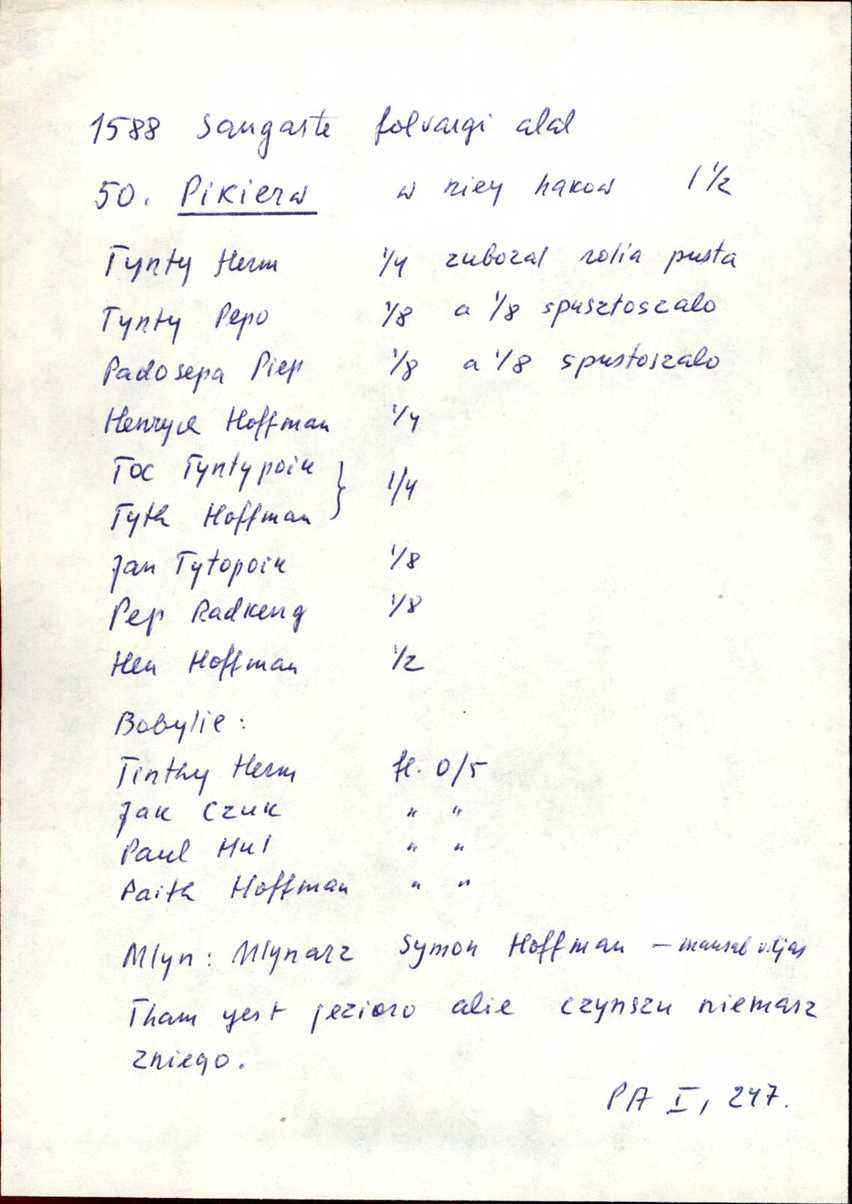 1588 Sangaste folvargi alal
50. Pikierw w niey hakow 1 1/2
Tynty Herm 1/4 zubozal rolia pusta
Tynty Pepo 1/8 a 1/8 spusztoszalo
Padosepa Piep 1/8 a 1/8 spustoszalo
Henryck Hoffman 1/4
Toc Tyntypoik } 1/4
Tyth Hoffman
Jan Tytopoik 1/8
Pep Radkeng 1/8
Hen Hoffman 1/2
Bobylie:
Tinthy Herm fl. 0/5
Jak Czuk " "
Paul Hul " "
Paith Hoffman " "
Mlyn: Mlynarz Symon Hoffman — maksab viljas
Tham yest jezioro alie czynszu niemasz
zniego.
PA I, 247.